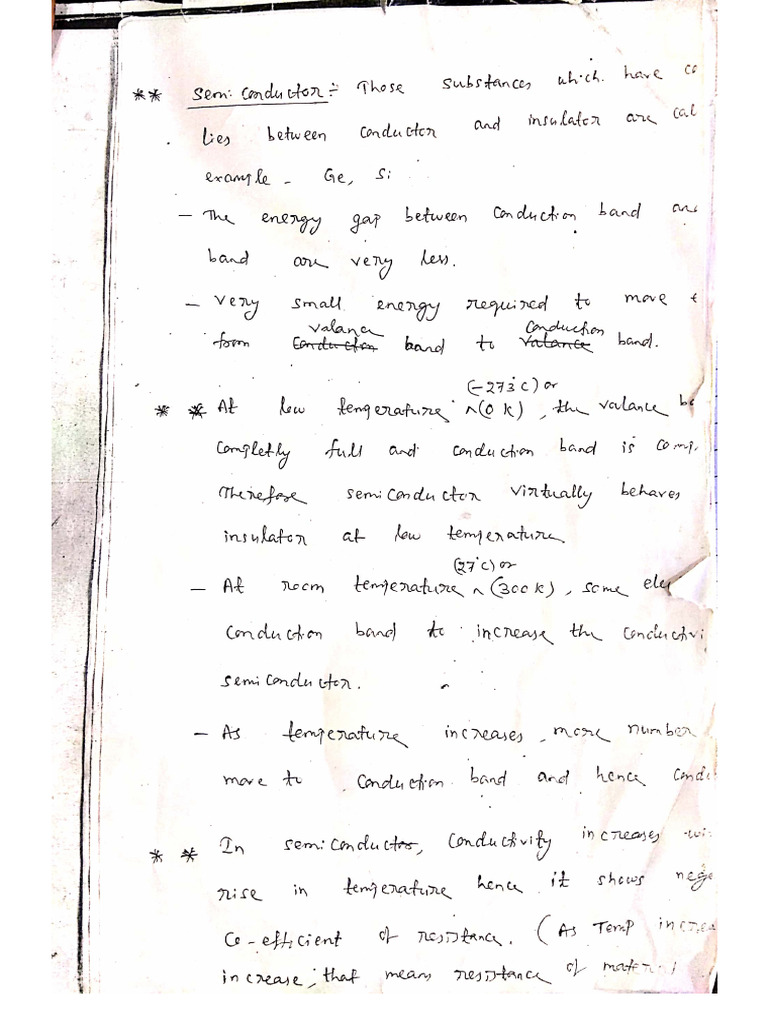 ** Semi conductor :- Those substances which have co
lies between conductor and insulator are cal
example - Ge, Si
- The energy gap between conduction band and
band are very less.
- very small energy required to move
valance conduction
from conduction band to valance band.
(-273°C) or
* * At low temperature ^(0 k), the valance ba
completly full and conduction band is comp
Therefore semiconductor virtually behaves
insulator at low temperature
(27°C) or
- At room temperature ^(300k), some elec
conduction band to increase the conductivi
semiconductor.
- As temperature increases, more number
move to conduction band and hence conduc
* * In semiconductor, conductivity increases wi
rise in temperature hence it shows nega
co-efficient of resistance. (As Temp increa
increase, that means resistance of material